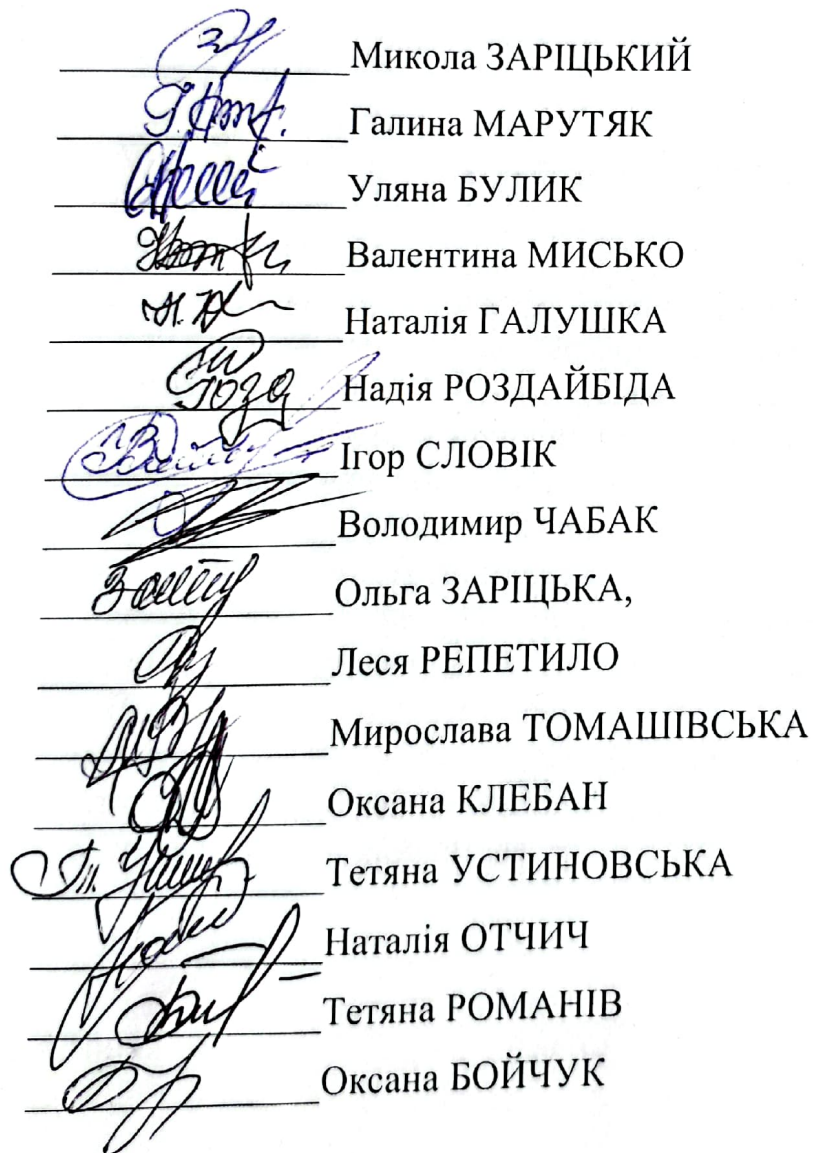 Микола ЗАРІЦЬКИЙ
Галина МАРУТЯК
Уляна БУЛИК
Валентина МИСЬКО
Наталія ГАЛУШКА
Надія РОЗДАЙБІДА
Ігор СЛОВІК
Володимир ЧАБАК
Ольга ЗАРІЦЬКА,
Леся РЕПЕТИЛО
Мирослава ТОМАШІВСЬКА
Оксана КЛЕБАН
Тетяна УСТИНОВСЬКА
Наталія ОТЧИЧ
Тетяна РОМАНІВ
Оксана БОЙЧУК